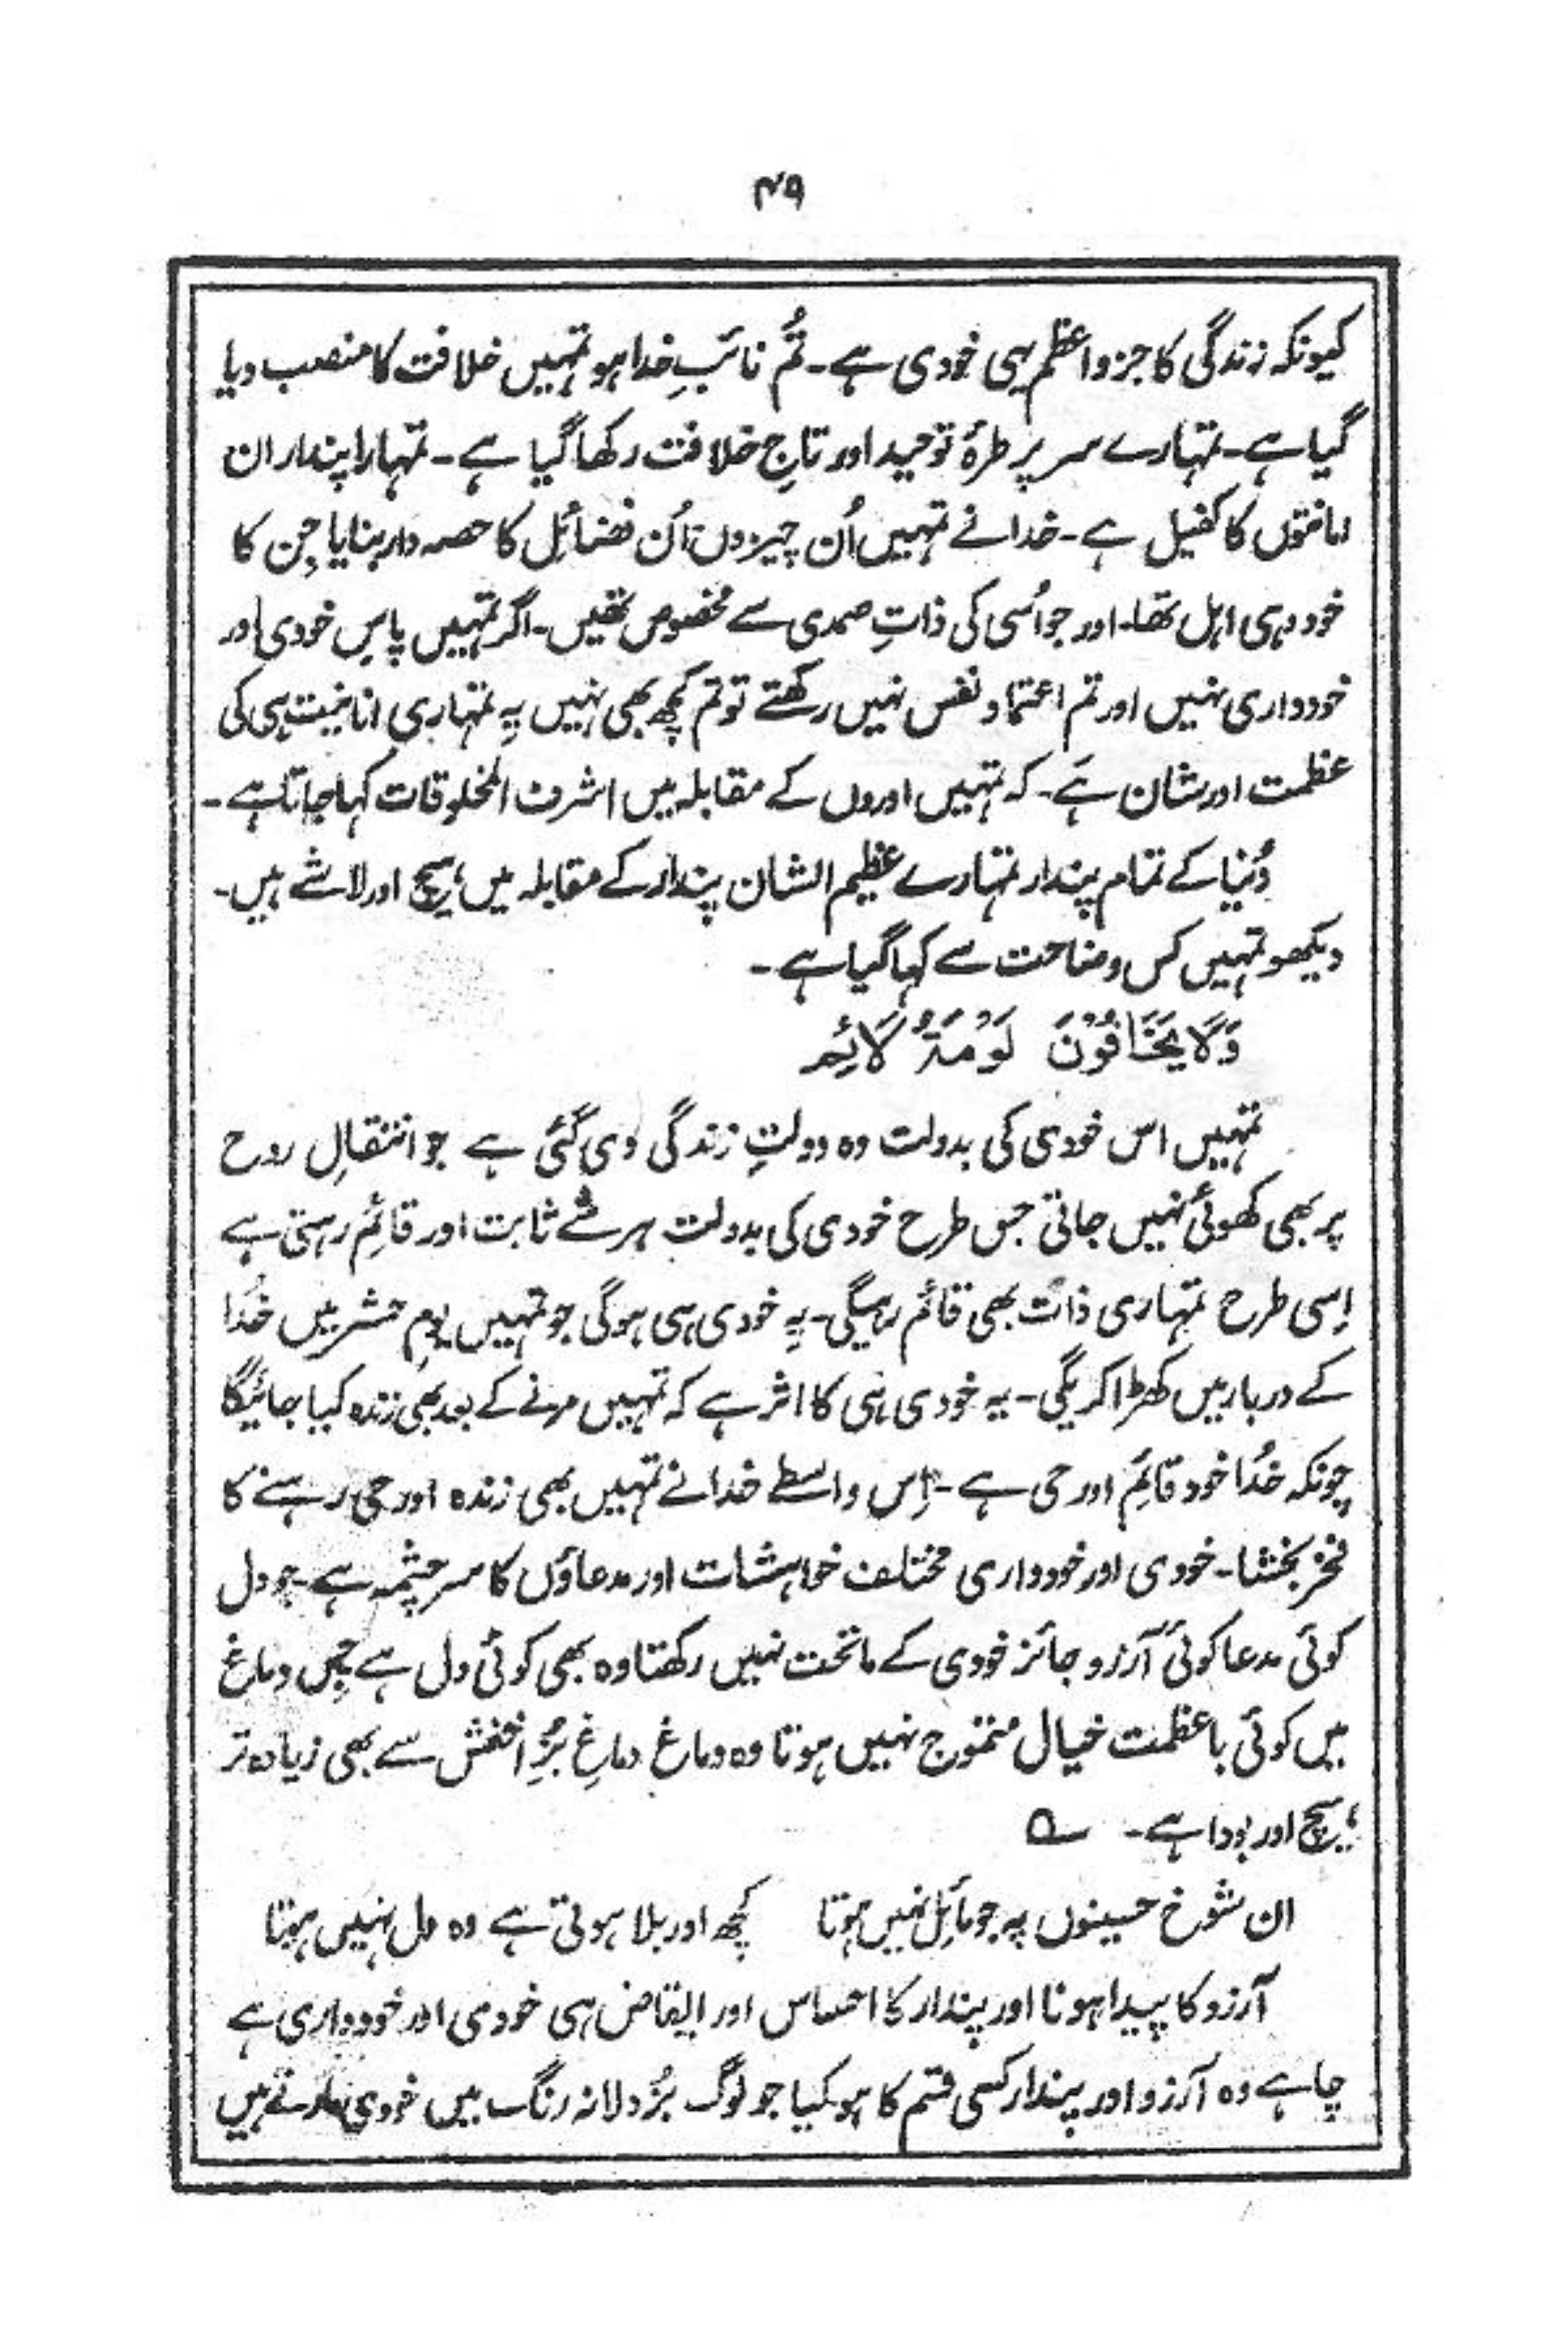 ۴۹
کیونکہ زندگی کا جزو اعظم یہی خودی ہے۔ تُم نائبِ خدا ہو تمہیں خلافت کا منصب دیا
گیا ہے۔ تمہارے سر پر طرۂ توحید اور تاجِ خلافت رکھا گیا ہے۔ تمہارا پندار ان
امانتوں کا کفیل ہے۔ خدا نے تمہیں اُن چیزوں اُن فضائل کا حصہ دار بنایا جِن کا
خود ہی اہل تھا۔ اور جو اُسی کی ذاتِ صمدی سے مخصوص تھیں۔ اگر تمہیں پاسِ خودی اور
خودداری نہیں اور تم اعتماد نفس نہیں رکھتے تو تم کچھ بھی نہیں یہ تمہاری انانیت ہی کی
عظمت اور شان ہے۔ کہ تمہیں اوروں کے مقابلہ میں اشرف المخلوقات کہا جاتا ہے۔
دُنیا کے تمام پندار تمہارے عظیم الشان پندار کے مقابلہ میں ہیچ اور لاشے ہیں۔
دیکھو تمہیں کس وضاحت سے کہا گیا ہے۔
وَلَا يَخَافُوْنَ لَوْمَةُ لَائِم
تمہیں اس خودی کی بدولت وہ دولتِ زندگی دی گئی ہے جو انتقالِ روح
پر بھی کھوئی نہیں جاتی جس طرح خودی کی بدولت ہر شے ثابت اور قائم رہتی ہے
اِسی طرح تمہاری ذات بھی قائم رہیگی۔ یہ خودی ہی ہوگی جو تمہیں یومِ حشر میں خُدا
کے دربار میں کھڑا کریگی۔ یہ خودی ہی کا اثر ہے کہ تمہیں مرنے کے بعد بھی زندہ کیا جائیگا
چونکہ خُدا خود قائم اور حی ہے۔ اِس واسطے خدا نے تمہیں بھی زندہ اور حی رہنے کا
فخر بخشا۔ خودی اور خودداری مختلف خواہشات اور مدعاؤں کا سرچشمہ ہے۔ جو دل
کوئی مدعا کوئی آرزو جائز خودی کے ماتحت نہیں رکھتا وہ بھی کوئی دل ہے جِس دماغ
میں کوئی باعظمت خیال متموج نہیں ہوتا وہ دماغ دماغِ بُزِ اخفش سے بھی زیادہ تر
ہیچ اور بودا ہے۔ ؎
ان شوخ حسینوں پہ جو مائل نہیں ہوتا کچھ اور بلا ہوتی ہے وہ دل نہیں ہوتا
آرزو کا پیدا ہونا اور پندار کا احساس اور ایقاض ہی خودی اور خودداری ہے
چاہے وہ آرزو اور پندار کسی قسم کا ہو کیا جو لوگ بُزدلانہ رنگ میں خودی مارتے ہیں